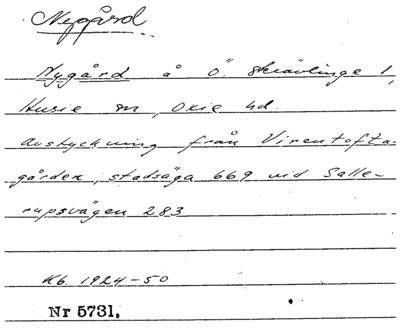 Nygård
Nygård å Ö. Skrävlinge 1,
Husie sn, Oxie hd.
Avstyckning från Virentofta-
gården, stadsäga 669 vid Salle-
rupsvägen 283
Kb. 1924-50
Nr 5731.